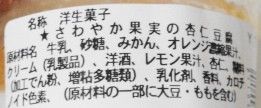 名称 洋生菓子
★さわやか果実の杏仁豆腐
原材料名 牛乳、砂糖、みかん、オレンジ濃縮果汁、
クリーム(乳製品)、洋酒、レモン果汁、杏仁、
(加工でん粉、増粘多糖類)、乳化剤、香料、カロチ
ノイド色素、(原材料の一部に大豆・ももを含む)